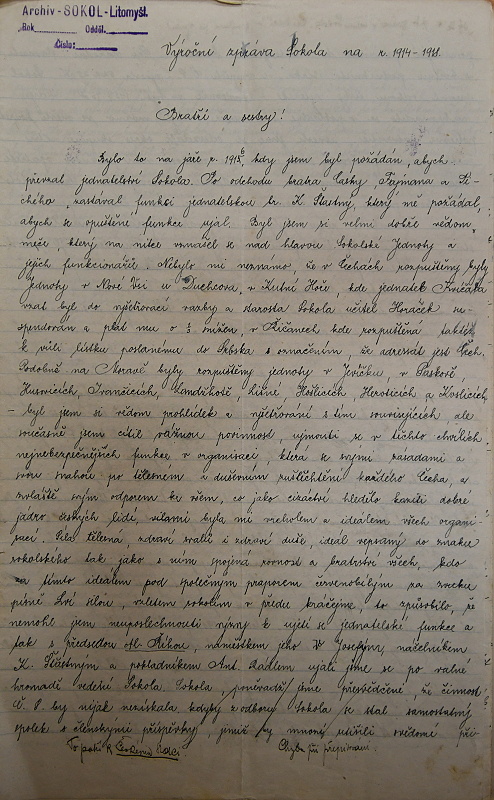 Archiv-SOKOL-Litomyšl.
Rok Odděl.
Číslo:
Výroční zpráva Sokola na r. 1914-1918.
Bratří a sestry!
Bylo to na jaře r. 1915, kdy jsem byl požádán, abych
převzal jednatelství Sokola. Po odchodu bratra Lasky, Fajmana a
chého, zastával funkci jednatelskou br. K. Šťastný, který mě požádal,
abych se opuštěné funkce ujal. Byl jsem si velmi dobře vědom
meče, který na nitce vznášel se nad hlavou Sokolské Jednoty a
jejích funkcionářů. Nebylo mi neznámo, že v Čechách rozpuštěny byly
Jednoty v Nové Vsi u Duchcova, v Kutné Hoře, kde jednatel
vzat byl do vyšetřovací vazby a starosta Sokola učitel Horáček su-
spendován a plat mu o ⅓ snížen, v Říčanech kde rozpuštěna taktéž
k vůli lístku poslanému do Srbska s označením, že adresát jest Čech.
Podobně na Moravě byly rozpuštěny jednoty v Jevíčku, v Paskově
Husovicích, Ivančicích, Lanžhotě, Líšni, Hošticích, Herošticích a
byl jsem si vědom prohlídek a vyšetřování s tím souvisejících, ale
současně jsem cítil vážnou povinnost, ujmouti se v těchto chvílích
nejnebezpečnějších funkce v organisaci, která svými zásadami a
svou snahou po tělesném i duševním zušlechtění každého Čecha, a
zvláště svým odporem ke všem, co jako cizáctví hledělo kaziti dobré
jádro českých lidí, vždy byla mi vrcholem a ideálem všech organi-
sací. Síla tělesná, zdraví svalů i zdraví duše, ideál vepsaný do znaku
sokolského tak jako s ním spojená rovnost a bratrství všech, kdo
za tímto ideálem pod společným praporem červenobílým za zvuku
písně Lví silou, vzletem sokolím v předu kráčejme, to způsobilo, že
nemohl jsem neuposlechnouti výzvy k ujetí se jednatelské funkce a
tak s předsedou Říhou, náměstkem jeho V. Josefym, náčelníkem
K. Šťastným a pokladníkem Ant. Radlem ujali jsme se po valné
hromadě vedení Sokola Sokola, poněvadž jsme přesvědčeni, že činnost
by nijak nezískala kdyby z odboru Sokola se stal samostatný
spolek s členskými příspěvky, jimiž by mnozí utišili svědomí při-
To patří k Českému srdci.
Chyba při přepisování.